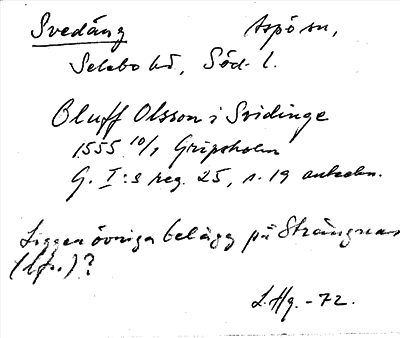 Svedäng Aspö sn,
Selebo hd, Söd. l.
Oluff Olsson i Svidinge
1555 10/1 Gripsholm
G. I:s reg. 25, s. 19 anteckn.
Ligger övriga belägg på Strängnäs
(lfs.)?
L. Hg. -72.